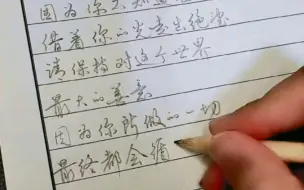 因为你不知道
借着你的光走出绝望
请保持对这个世界
最大的善意
因为你所做的一切
最终都会循